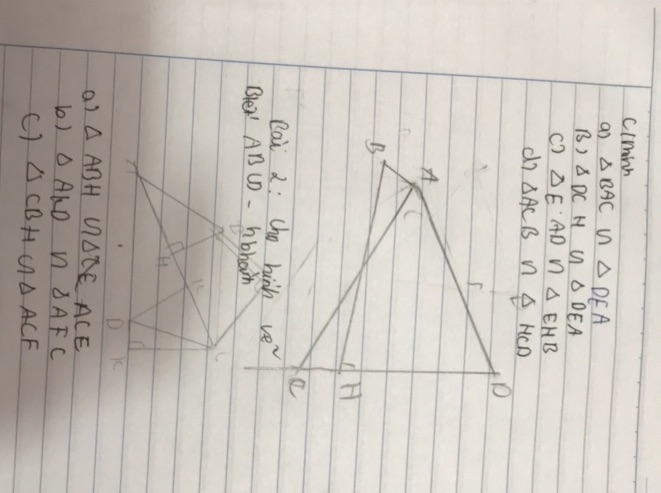 C/minh
a) Δ BAC ∽ Δ DEA
B) Δ DCH ∽ Δ DEA
C) Δ E AD ∽ Δ EHB
d) Δ ACB ∽ Δ HCD
A
B
C
E
H
D
Bài 2: Cho hình vẽ
Biết ABCD - hbhành
B
H
C
D
K
a) Δ ABH ∽ Δ ACE
b) Δ AND ∽ Δ AFC
C) Δ CBH ∽ Δ ACF